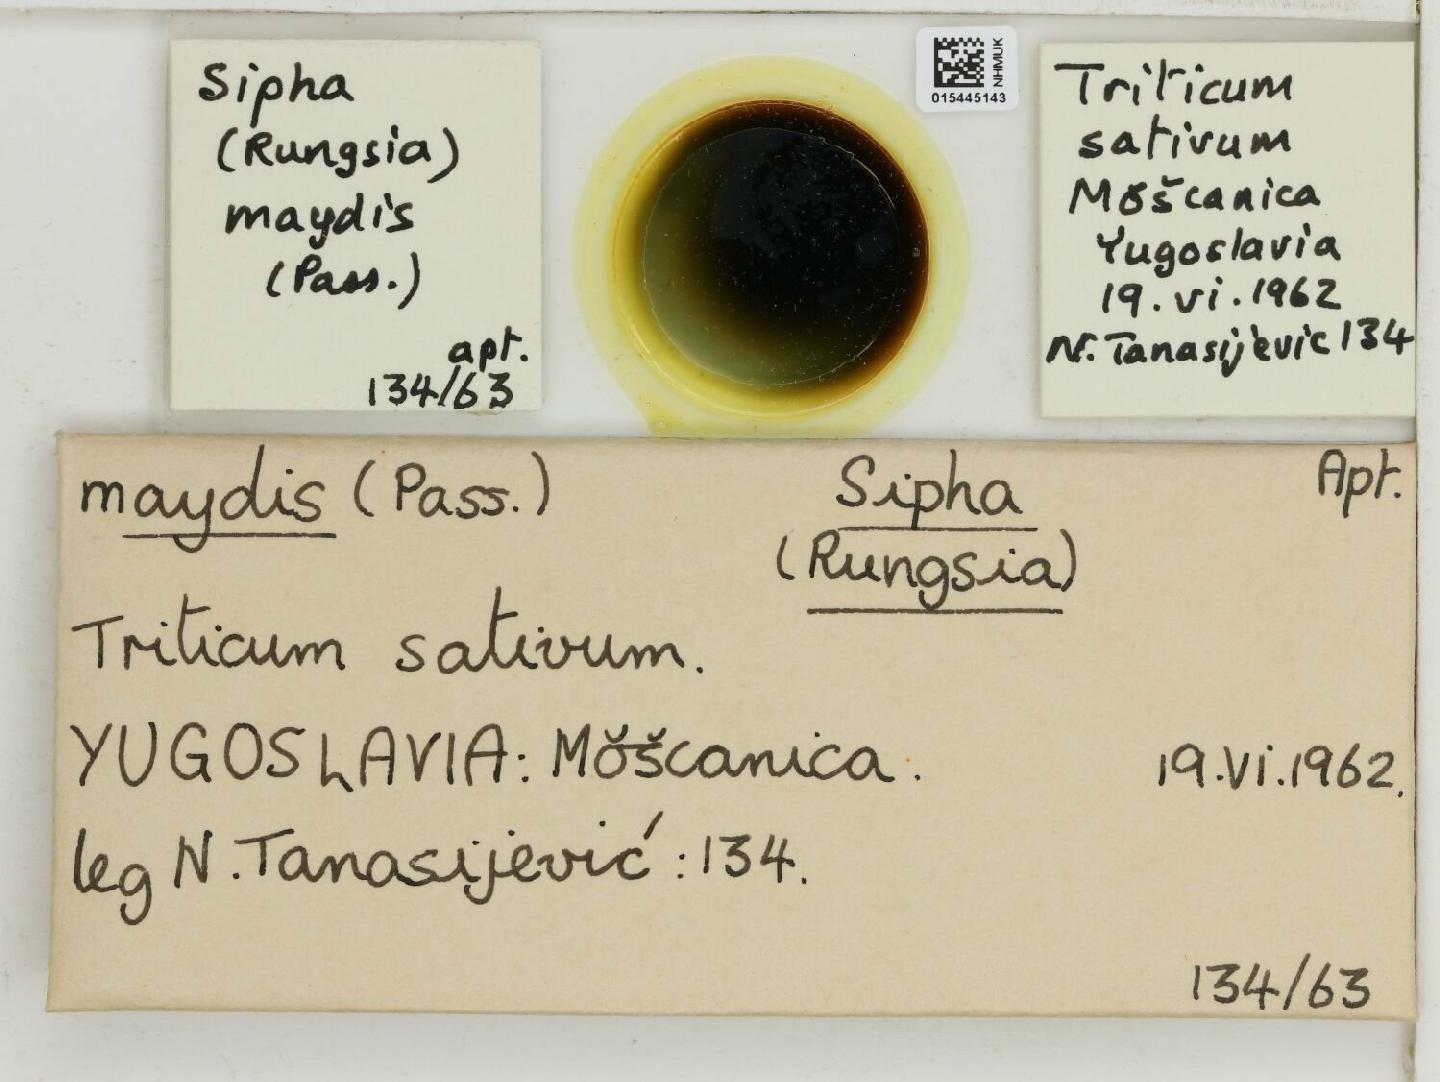 Sipha
(Rungsia)
maydis
(Pass.)
apt.
134/63
NHMUK
015445143
Triticum
sativum
Mŏšcanica
Yugoslavia
19.vi.1962
N. Tanasijevic 134
maydis (Pass.) Sipha Apt.
(Rungsia)
Triticum sativum.
YUGOSLAVIA: Mŏšcanica. 19.vi.1962.
leg N. Tanasijević: 134.
134/63